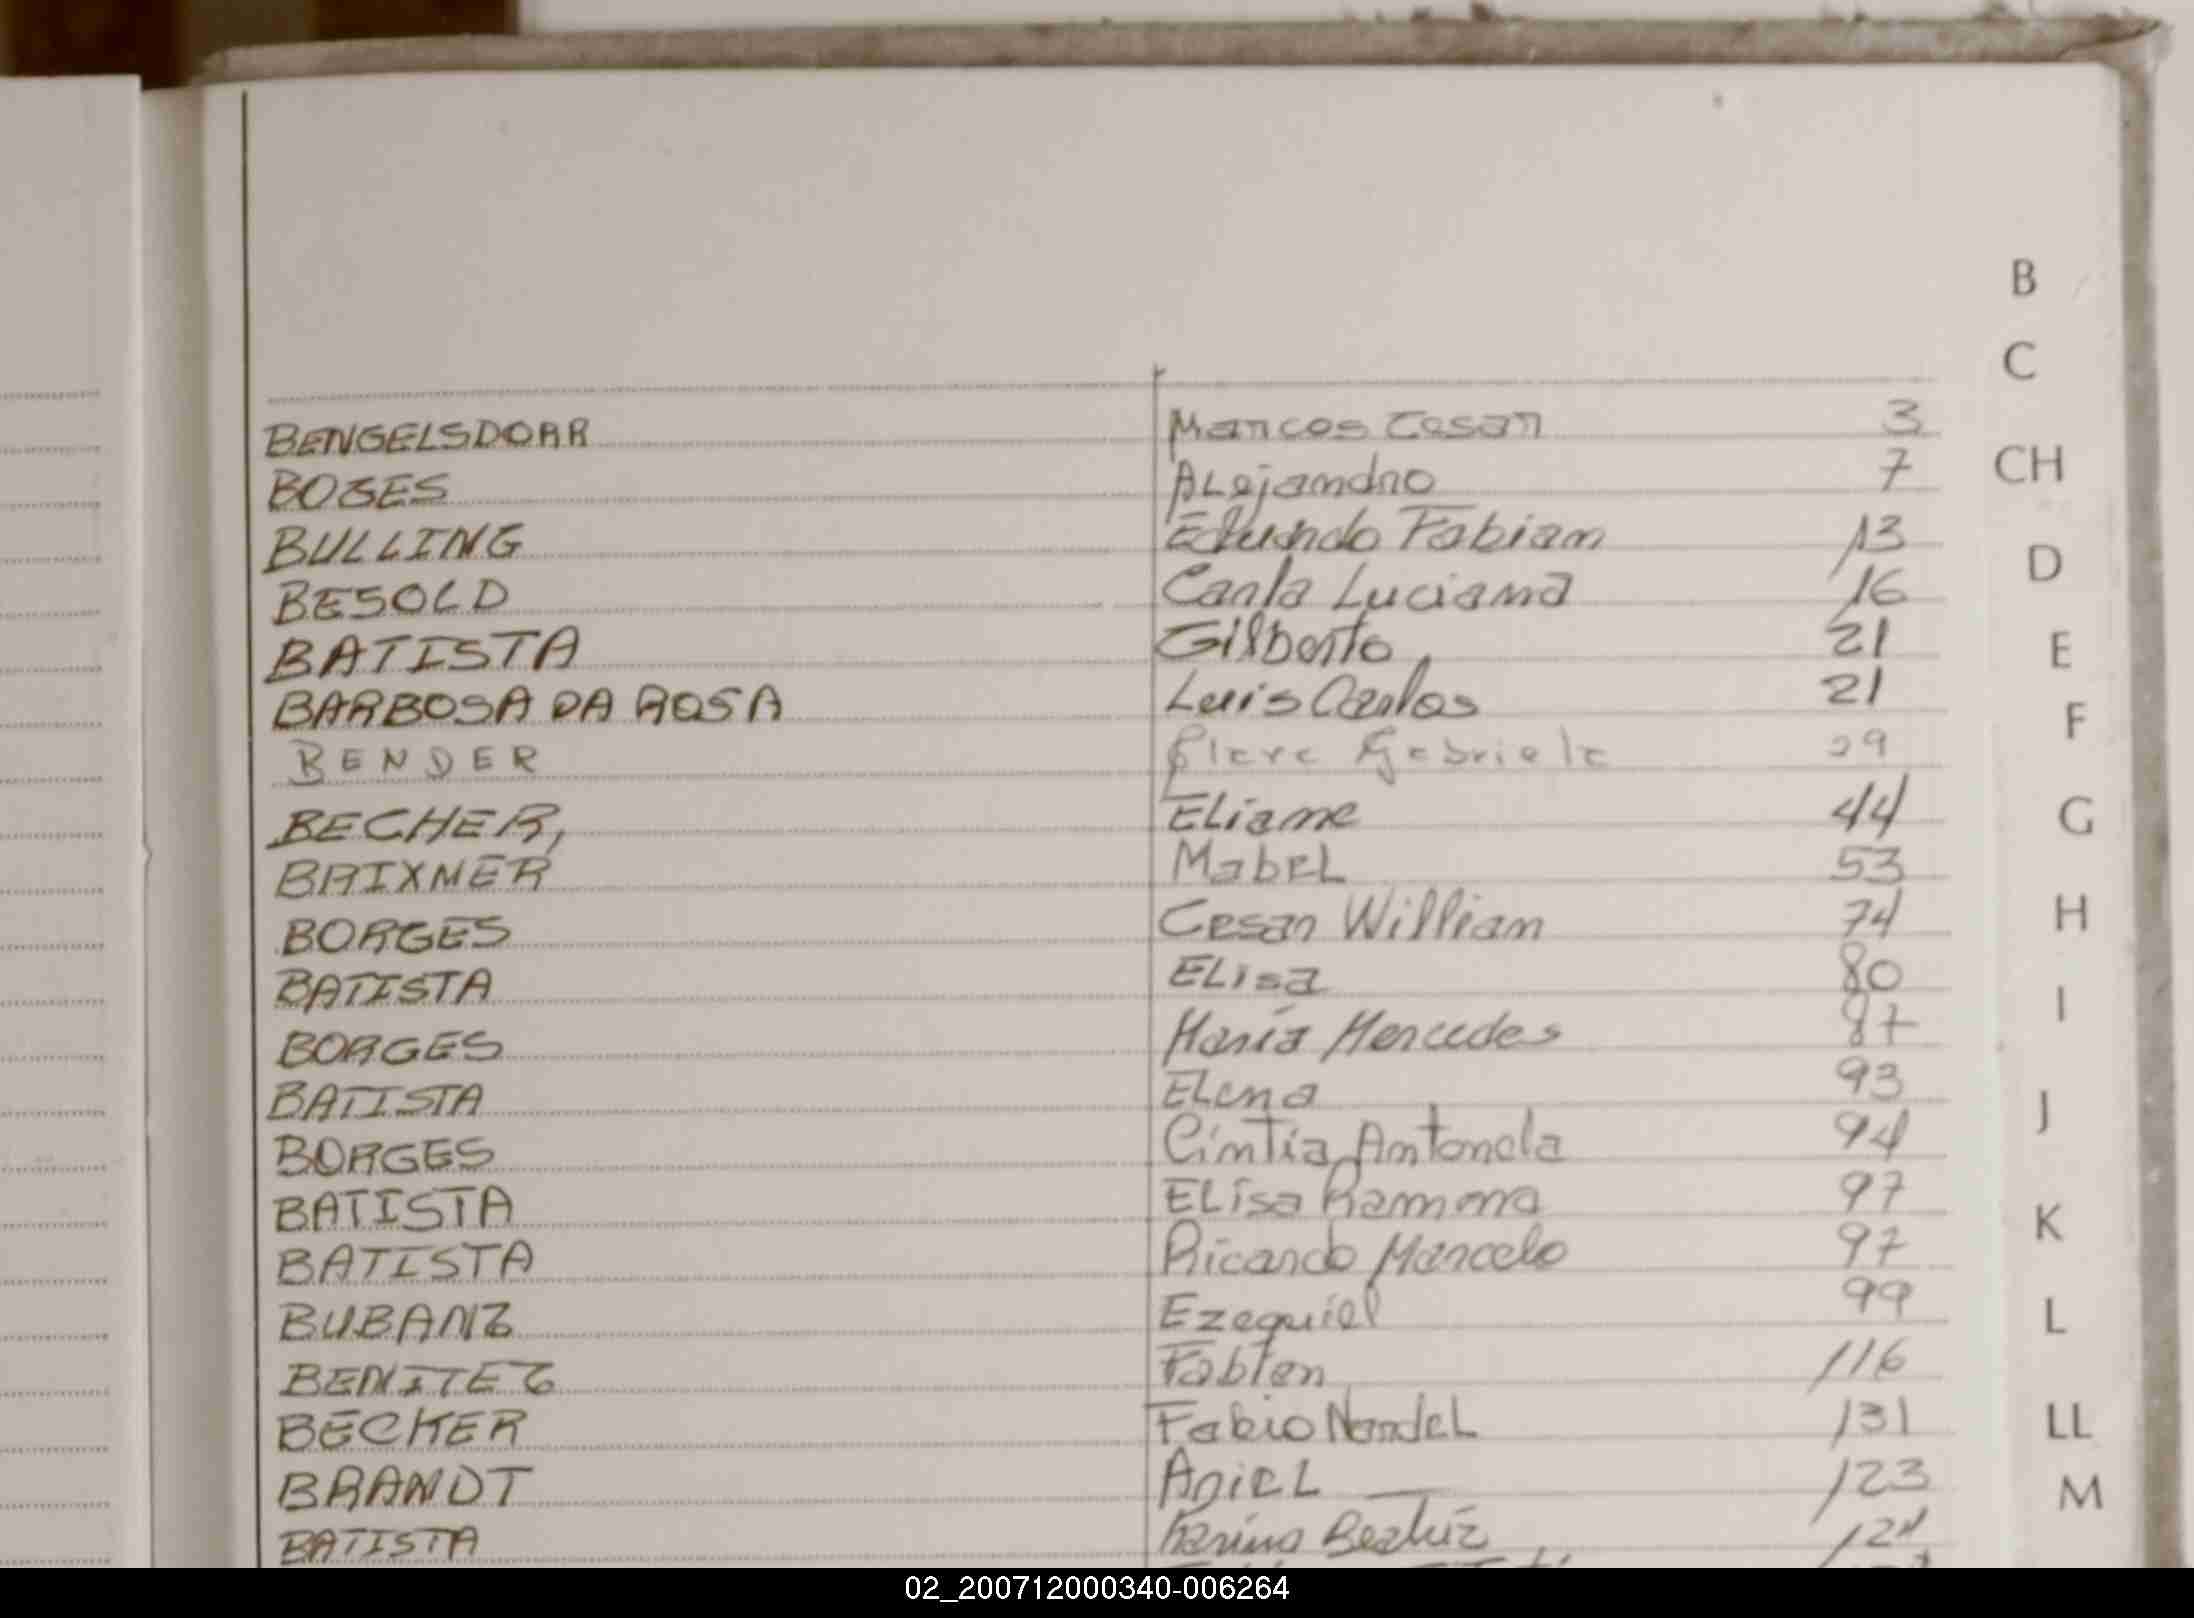 B
C
BENGELSDORR Marcos Cesar 3
CH
BOGES Alejandro 7
BULLING Eduardo Fabian 13
D
BESOLD Carla Luciana 16
BATISTA Gilberto 21
E
BARBOSA DA ROSA Luis Carlos 21
F
BENDER Gabriela 29
BECHER, Eliane 44
G
BRIXNER Mabel 53
BORGES Cesar William 74
H
BATISTA Elisa 80
I
BORGES María Mercedes 87
BATISTA Elena 93
J
BORGES Cintia Antonela 94
BATISTA Elisa Ramona 97
K
BATISTA Ricardo Marcelo 97
BUBANZ Ezequiel 99
L
BENITEZ Fabian 116
BECKER Fabio Nardel 131
LL
BRANDT Ariel 123
M
BATISTA Karina Beatriz 124
02_200712000340-006264